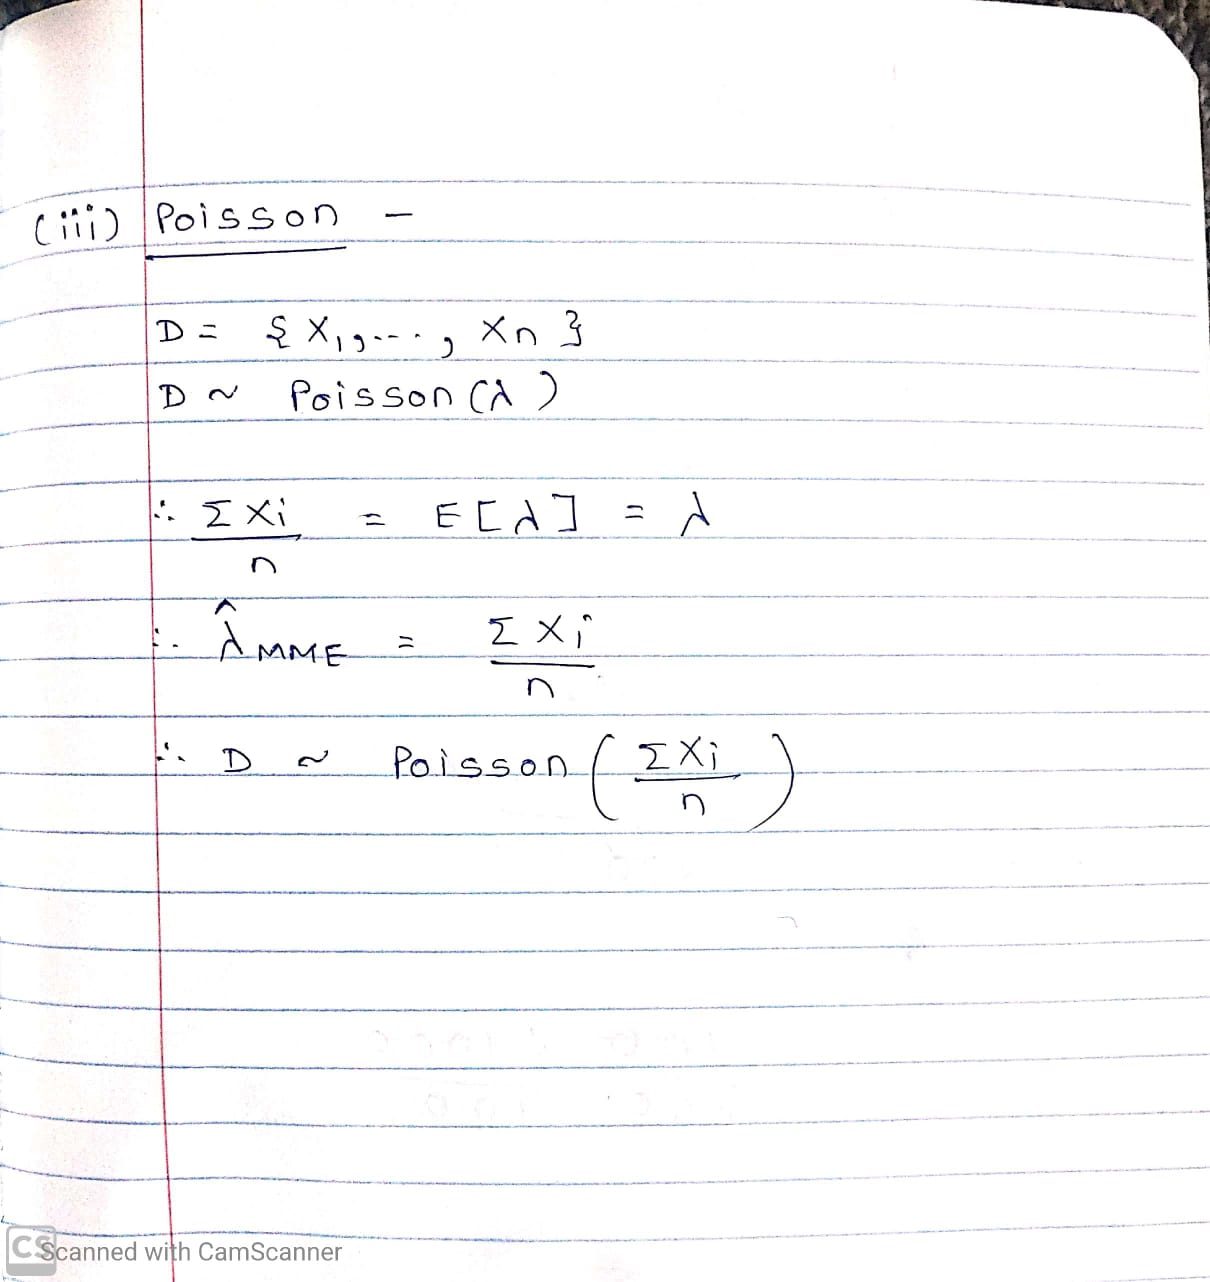 (iii) Poisson -
D = { X1,...., Xn }
D ~ Poisson (λ)
∴ ΣXi / n = E[λ] = λ
∴ λ̂MME = ΣXi / n
∴ D ~ Poisson ( ΣXi / n )
CS Scanned with CamScanner